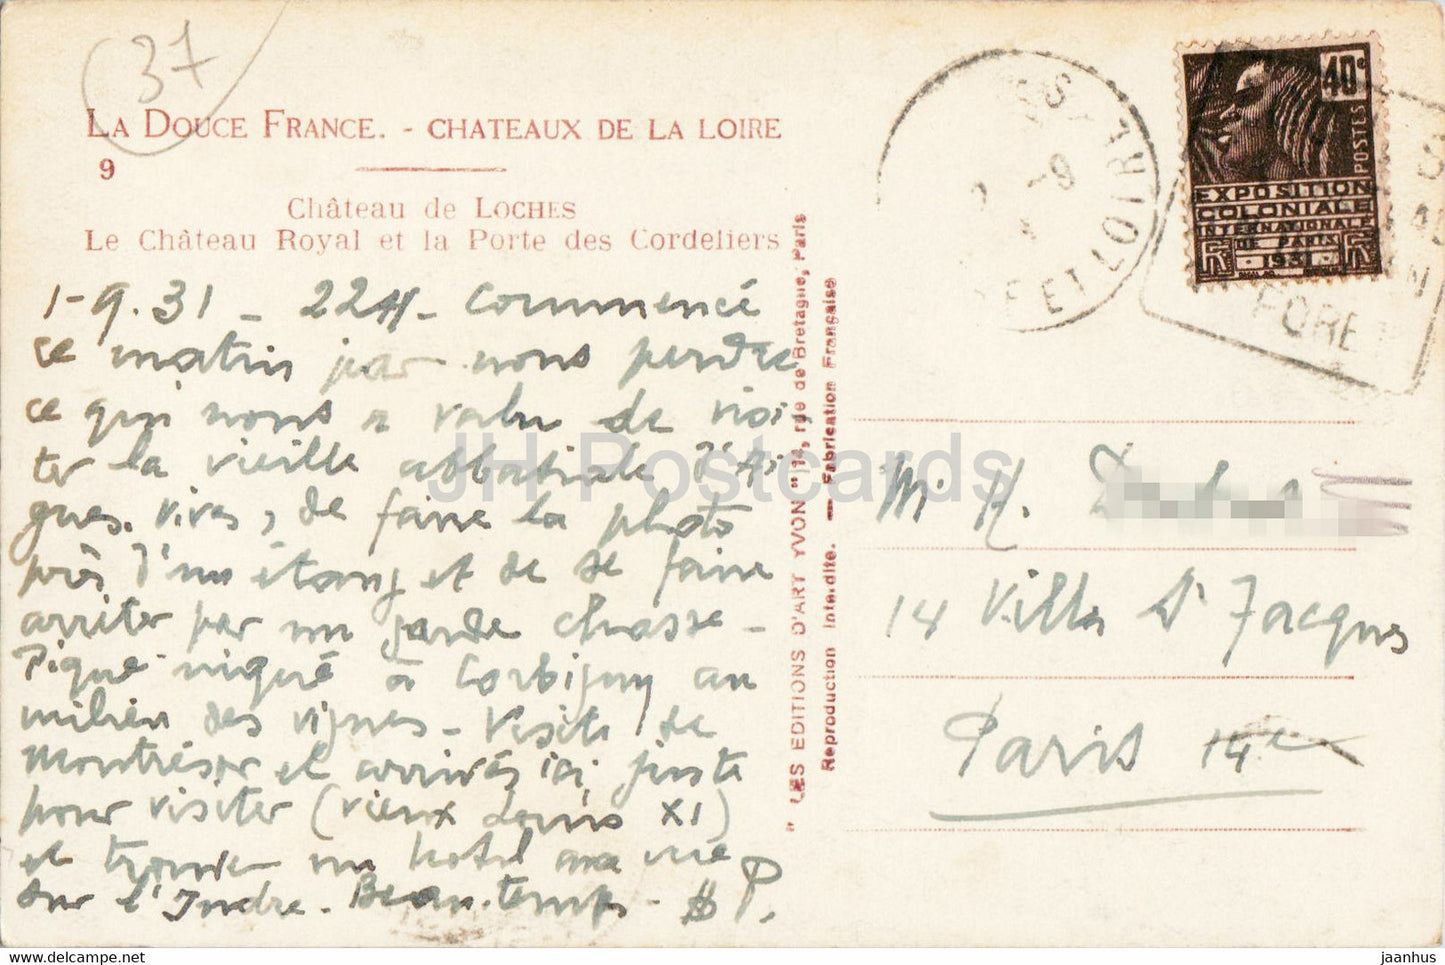 37
LA DOUCE FRANCE. - CHATEAUX DE LA LOIRE
9
Château de LOCHES
Le Château Royal et la Porte des Cordeliers
1-9.31 - 22H - Commencé
ce matin par nous perdre
ce qui nous a valu de visi
ter la vieille abbatiale d'Ai
gues-Vives, de faire la photo
près d'un étang et de se faire
arrêter par un garde chasse -
Pique-niqué à Corbigny au
milieu des vignes - Visite de
Montrésor et arrivés ici juste
pour visiter (vieux Louis XI)
et trouver un hotel avec vue
sur l'Indre - Beau temps -
" LES EDITIONS D'ART YVON " 14, rue de Bretagne, Paris
Reproduction interdite. — Fabrication Française
JH Postcards
ET LOIRE
40c
POSTES
EXPOSITION
COLONIALE
INTERNATIONALE
DE PARIS
1931
FORE
M. H.
14 Villa St Jacques
Paris 14e
www.jaanhus.com/postcards
jaanhus